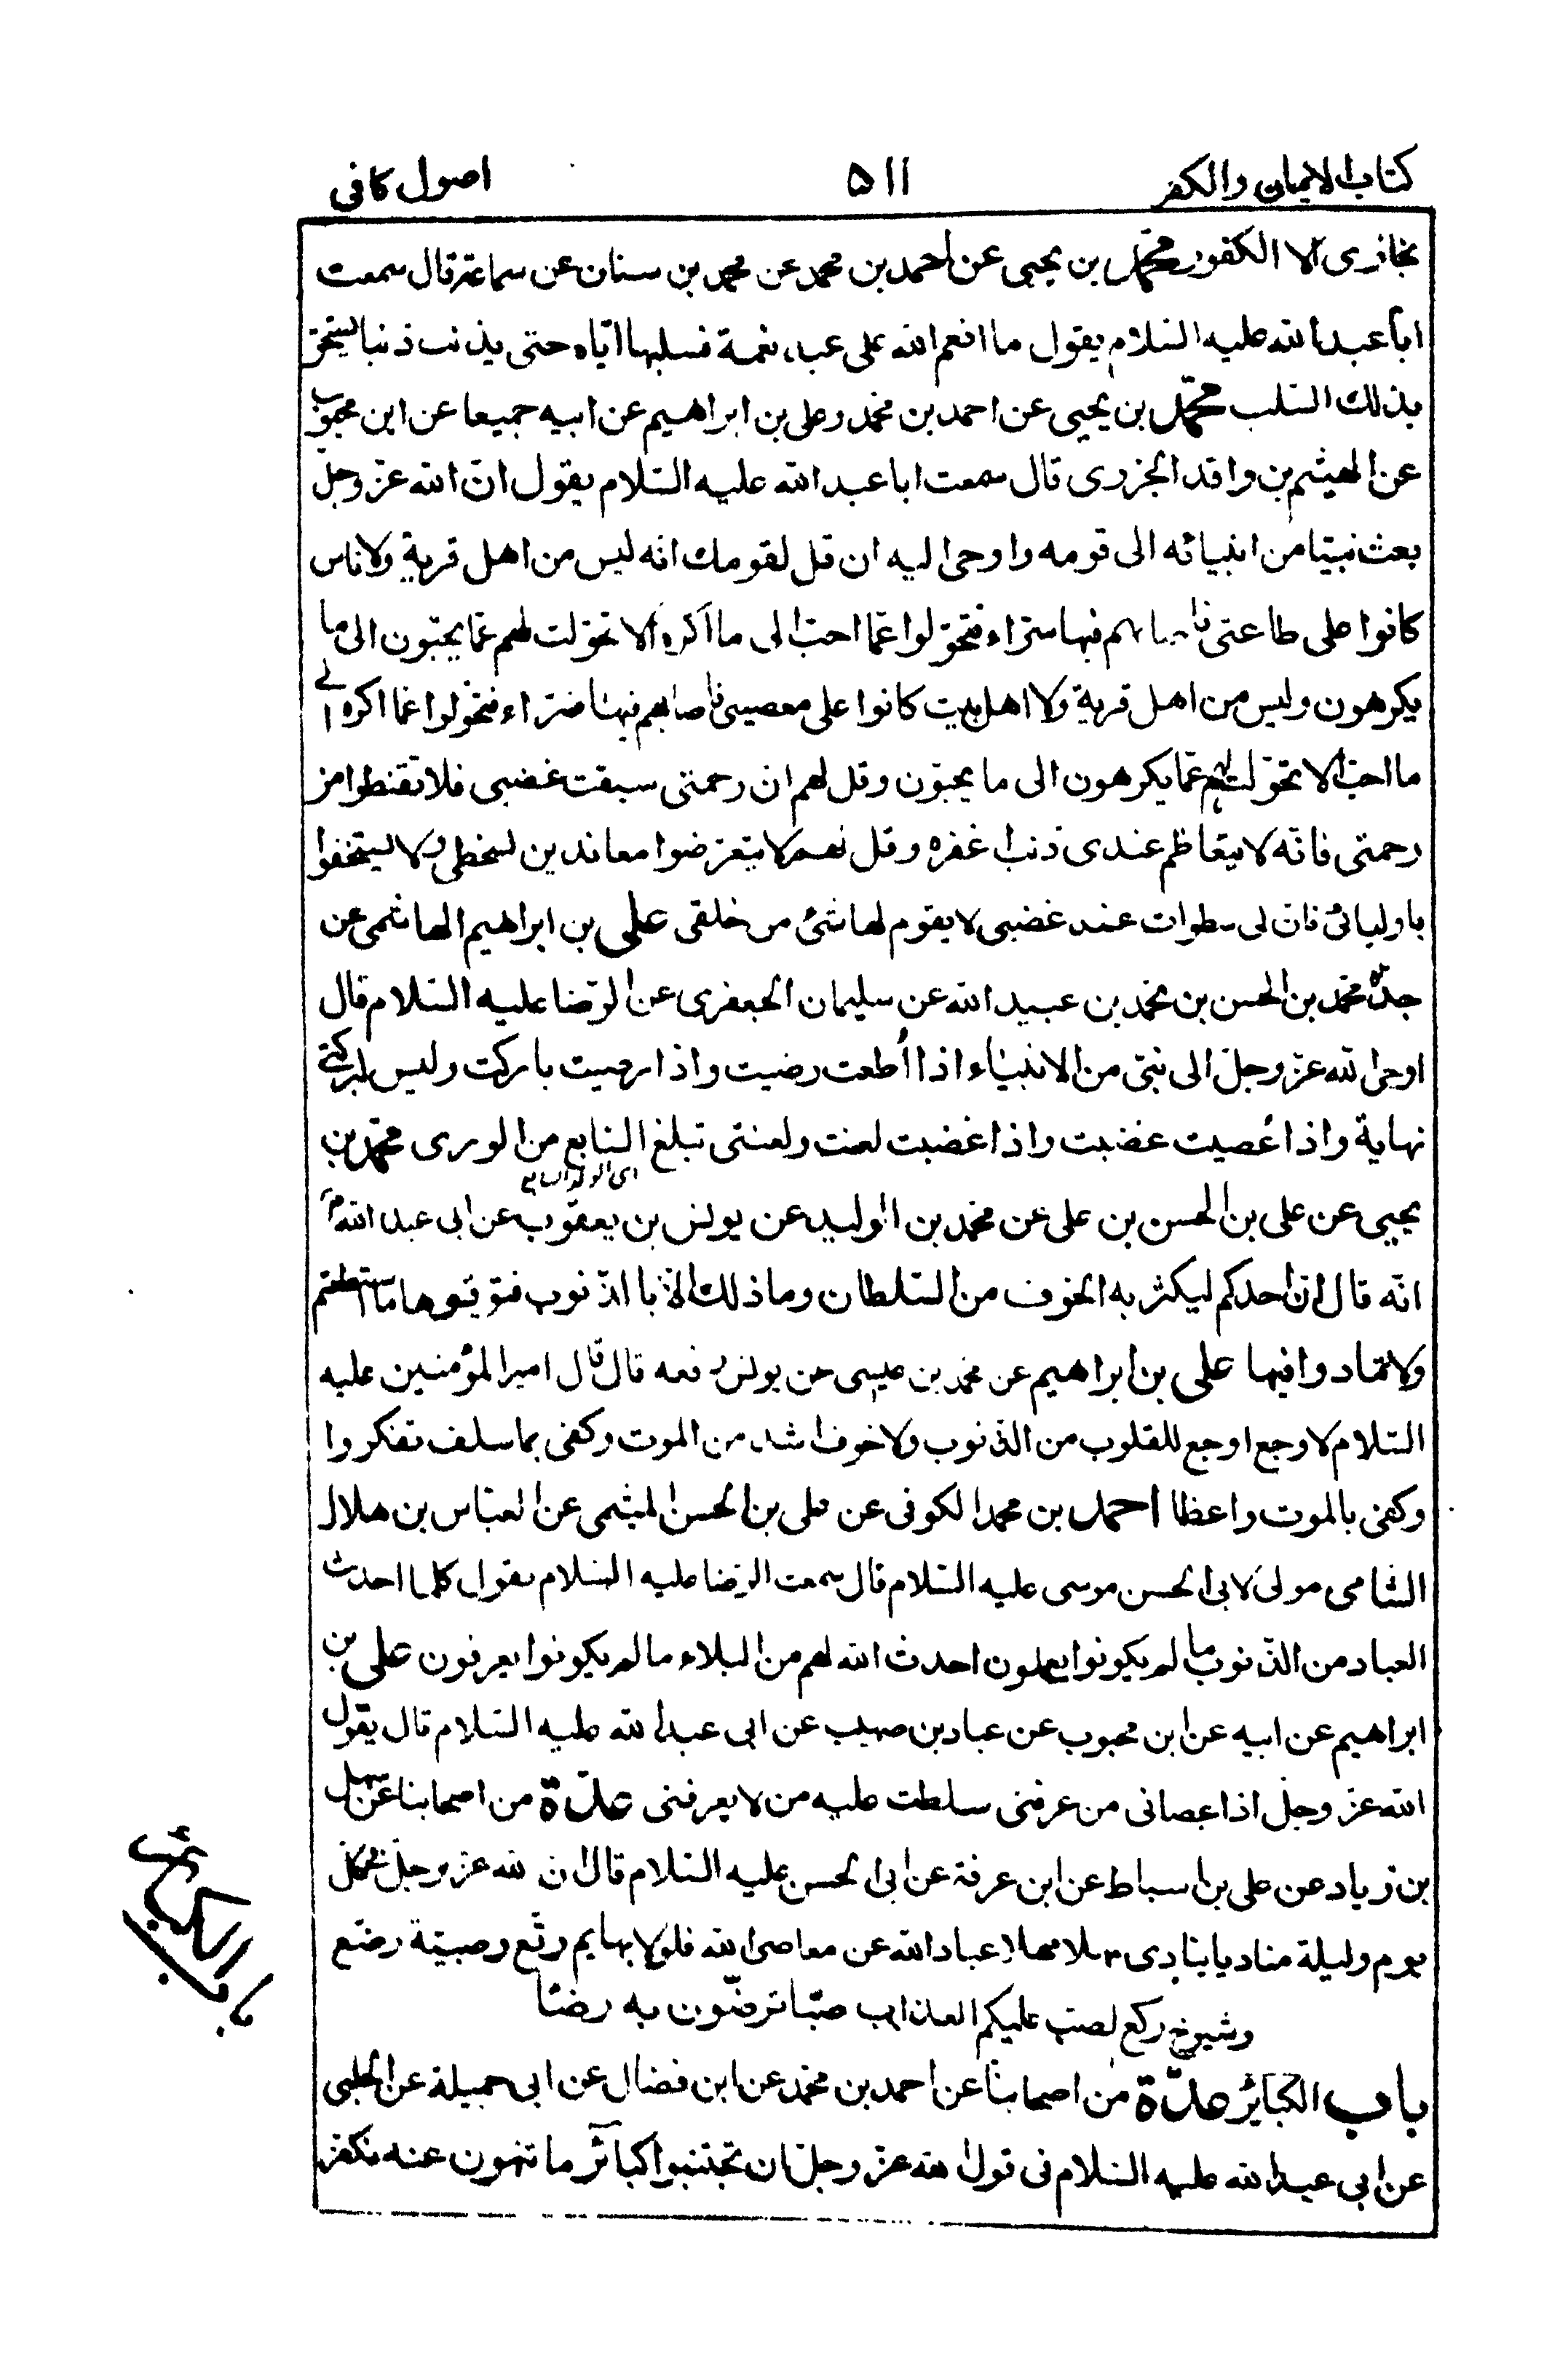 كتاب الايمان والكفر ۵۱۱ اصول كافى
نجازى الا الكفور محمّد بن يحيى عن احمد بن محمد عن محمد بن سنان عن سماعة قال سمعت
ابا عبد الله عليه السّلام يقول ما انعم الله على عبد نعمة فسلبها ايّاه حتى يذنب ذنبا يستحق
بذلك السّلب محمّد بن يحيى عن احمد بن محمّد وعلى بن ابراهيم عن ابيه جميعا عن ابن محبوب
عن الهيثم بن واقد الجزرى قال سمعت ابا عبد الله عليه السّلام يقول انّ الله عزّ وجلّ
بعث نبيّا من انبيائه الى قومه واوحى اليه ان قل لقومك انه ليس من اهل قرية ولا ناس
كانوا على طاعتى فاصابهم فيها سرّاء فتحوّلوا عمّا احبّ الى ما اكره الا تحوّلت لهم عمّا يحبّون الى ما
يكرهون وليس من اهل قرية ولا اهل بيت كانوا على معصيتى فاصابهم فيها ضرّاء فتحوّلوا عمّا اكره الى
ما احبّ الا تحوّلت لهم عمّا يكرهون الى ما يحبّون وقل لهم ان رحمتى سبقت غضبى فلا تقنطوا من
رحمتى فانّه لا يتعاظم عندى ذنب اغفره وقل لهم لا يتعرّضوا معاندين لسخطى ولا يستخفوا
باوليائى فانّ لى سطوات عند غضبى لا يقوم لها شئ من خلقى على بن ابراهيم الهاشمى عن
جدّه محمّد بن الحسن بن محمّد بن عبيد الله عن سليمان الجعفرى عن الرّضا عليه السّلام قال
اوحى الله عزّ وجلّ الى نبىّ من الانبياء اذا اُطعت رضيت واذا رضيت باركت وليس لبركتى
نهاية واذا عُصيت غضبت واذا غضبت لعنت ولعنتى تبلغ السّابع من الورى محمّد بن
اى الولد السابع
يحيى عن على بن الحسن بن على عن محمّد بن الوليد عن يونس بن يعقوب عن ابى عبد الله ع
انّه قال انّ احدكم ليكثر به الخوف من السّلطان وما ذلك الّا بالذّنوب فتوقّوها ما استطعتم
ولا تمادوا فيها على بن ابراهيم عن محمّد بن عيسى عن يونس رفعه قال قال امير المؤمنين عليه
السّلام لا وجع اوجع للقلوب من الذّنوب ولا خوف اشد من الموت وكفى بما سلف تفكروا
وكفى بالموت واعظا احمد بن محمد الكوفى عن على بن الحسن الميثمى عن العبّاس بن هلال
الشّامى مولى لابى الحسن موسى عليه السّلام قال سمعت الرّضا عليه السّلام يقول كلما احدث
العباد من الذّنوب ما لم يكونوا يعملون احدث الله لهم من البلاء ما لم يكونوا يعرفون على بن
ابراهيم عن ابيه عن ابن محبوب عن عباد بن صهيب عن ابى عبد الله عليه السّلام قال يقول
الله عزّ وجلّ اذا عصانى من عرفنى سلطت عليه من لا يعرفنى عدّة من اصحابنا عن سهل
بن زياد عن على بن اسباط عن ابن عرفة عن ابى الحسن عليه السّلام قال ان لله عزّ وجلّ فى كلّ
يوم وليلة مناديا ينادى مهلا مهلا عباد الله عن معاصى الله فلولا بهايم رتّع وصبيّة رضّع
وشيوخ ركع لصب عليكم العذاب صبّا ترضّون به رضّا
باب الكبائر
باب الكبائر عدّة من اصحابنا عن احمد بن محمّد عن ابن فضال عن ابى جميلة عن الحلبى
عن ابى عبد الله عليه السّلام فى قول الله عزّ وجلّ ان تجتنبوا كبائر ما تنهون عنه نكفر